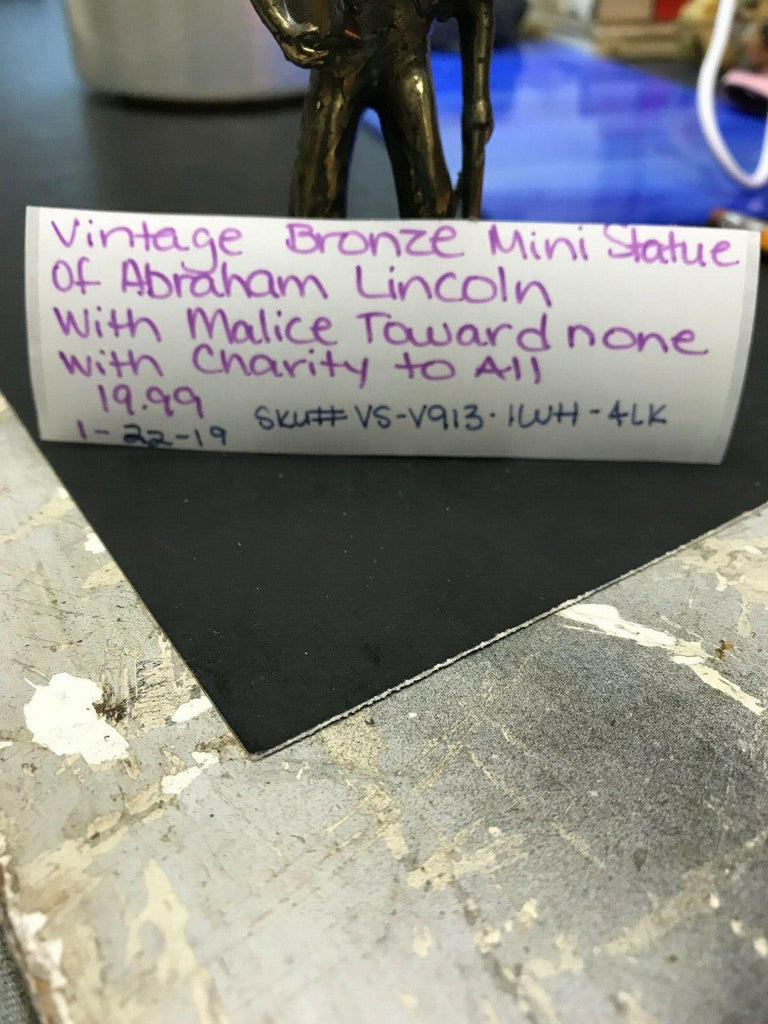 Vintage Bronze Mini Statue
Of Abraham Lincoln
With Malice Toward none
with Charity to All
19.99
1-22-19 SKU# VS-V913.1WH-4LK